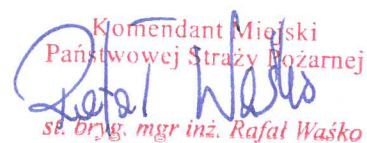 Komendant Miejski
Państwowej Straży Pożarnej
Rafał Waśko
st. bryg. mgr inż. Rafał Waśko